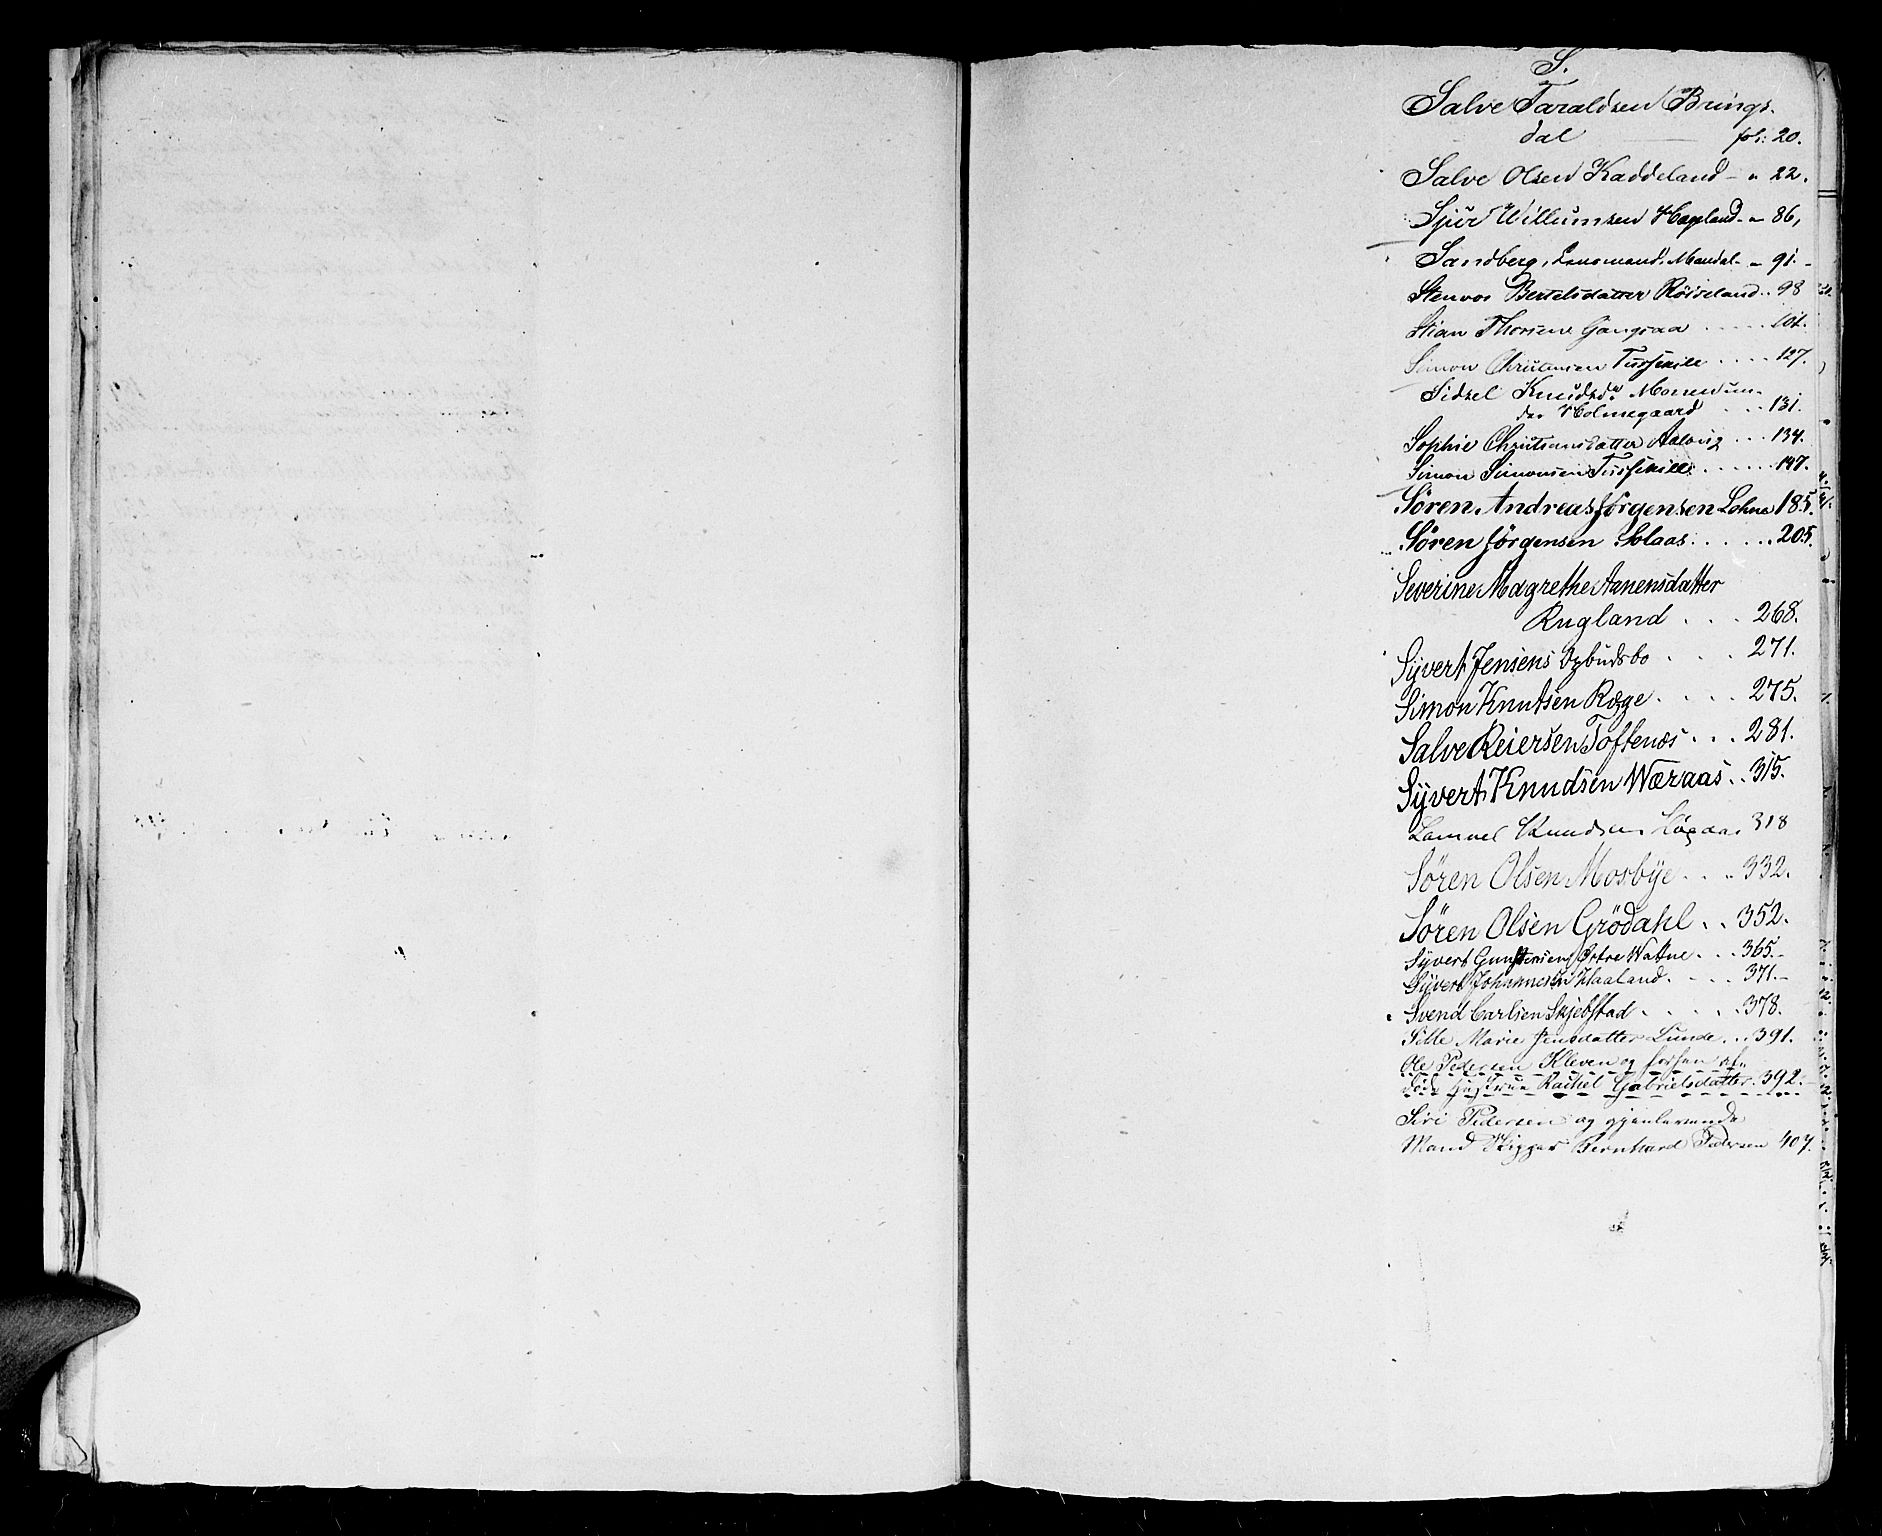 S.
Salve Taraldsen Brings-
dal fol: 20.
Salve Olsen Kaddeland - " 22.
Sjur Willumsen Hageland - " 86,
Sandberg, Lensmand, Mandal - " 91.
Stenvor Bertelsdatter Röiseland .. 98
Stian Thorsen Gangsaa ..... 101.
Simon Christensen Tursenile .... 127.
Sidsel Knudsdr Monnemun-
der Holmegaard .... 131.
Sophie Christiansdatter Aalvig ... 134.
Simon Simonsen ...... 147.
Sören Andreas Jörgensen Lohne 185.
Sören Jörgensen Solaas. ..... 205.
Severine Magrethe Aanensdatter
Rugland . . . 268.
Syvert Jensens Opbudsbo . . . . 271.
Simon Knutsen Ræge. . . . . 275.
Salve Reiersen Toftenæs . . . 281.
Syvert Knudsen Wæraas . . 315.
Samuel Knudsen Högaas 318
Sören Olsen Mosbye . . . 332.
Sören Olsen Grödahl . . 352.
Syvert Gundersen Östre Wattne . . . 365.-
Syvert Johannesen Haaland. . . . 371.-
Svend Carlsen Skjebstad . . . . . 378.
Sille Marie Jensdatter Lunde . .. 391.
Ole Pedersen Kleven og forhen af-
döde Hustrue Rachel Gabrielsdatter. 392.-
Siri Pedersen og gjenlevende
Mand Skipper Bernhard Pedersen 407.